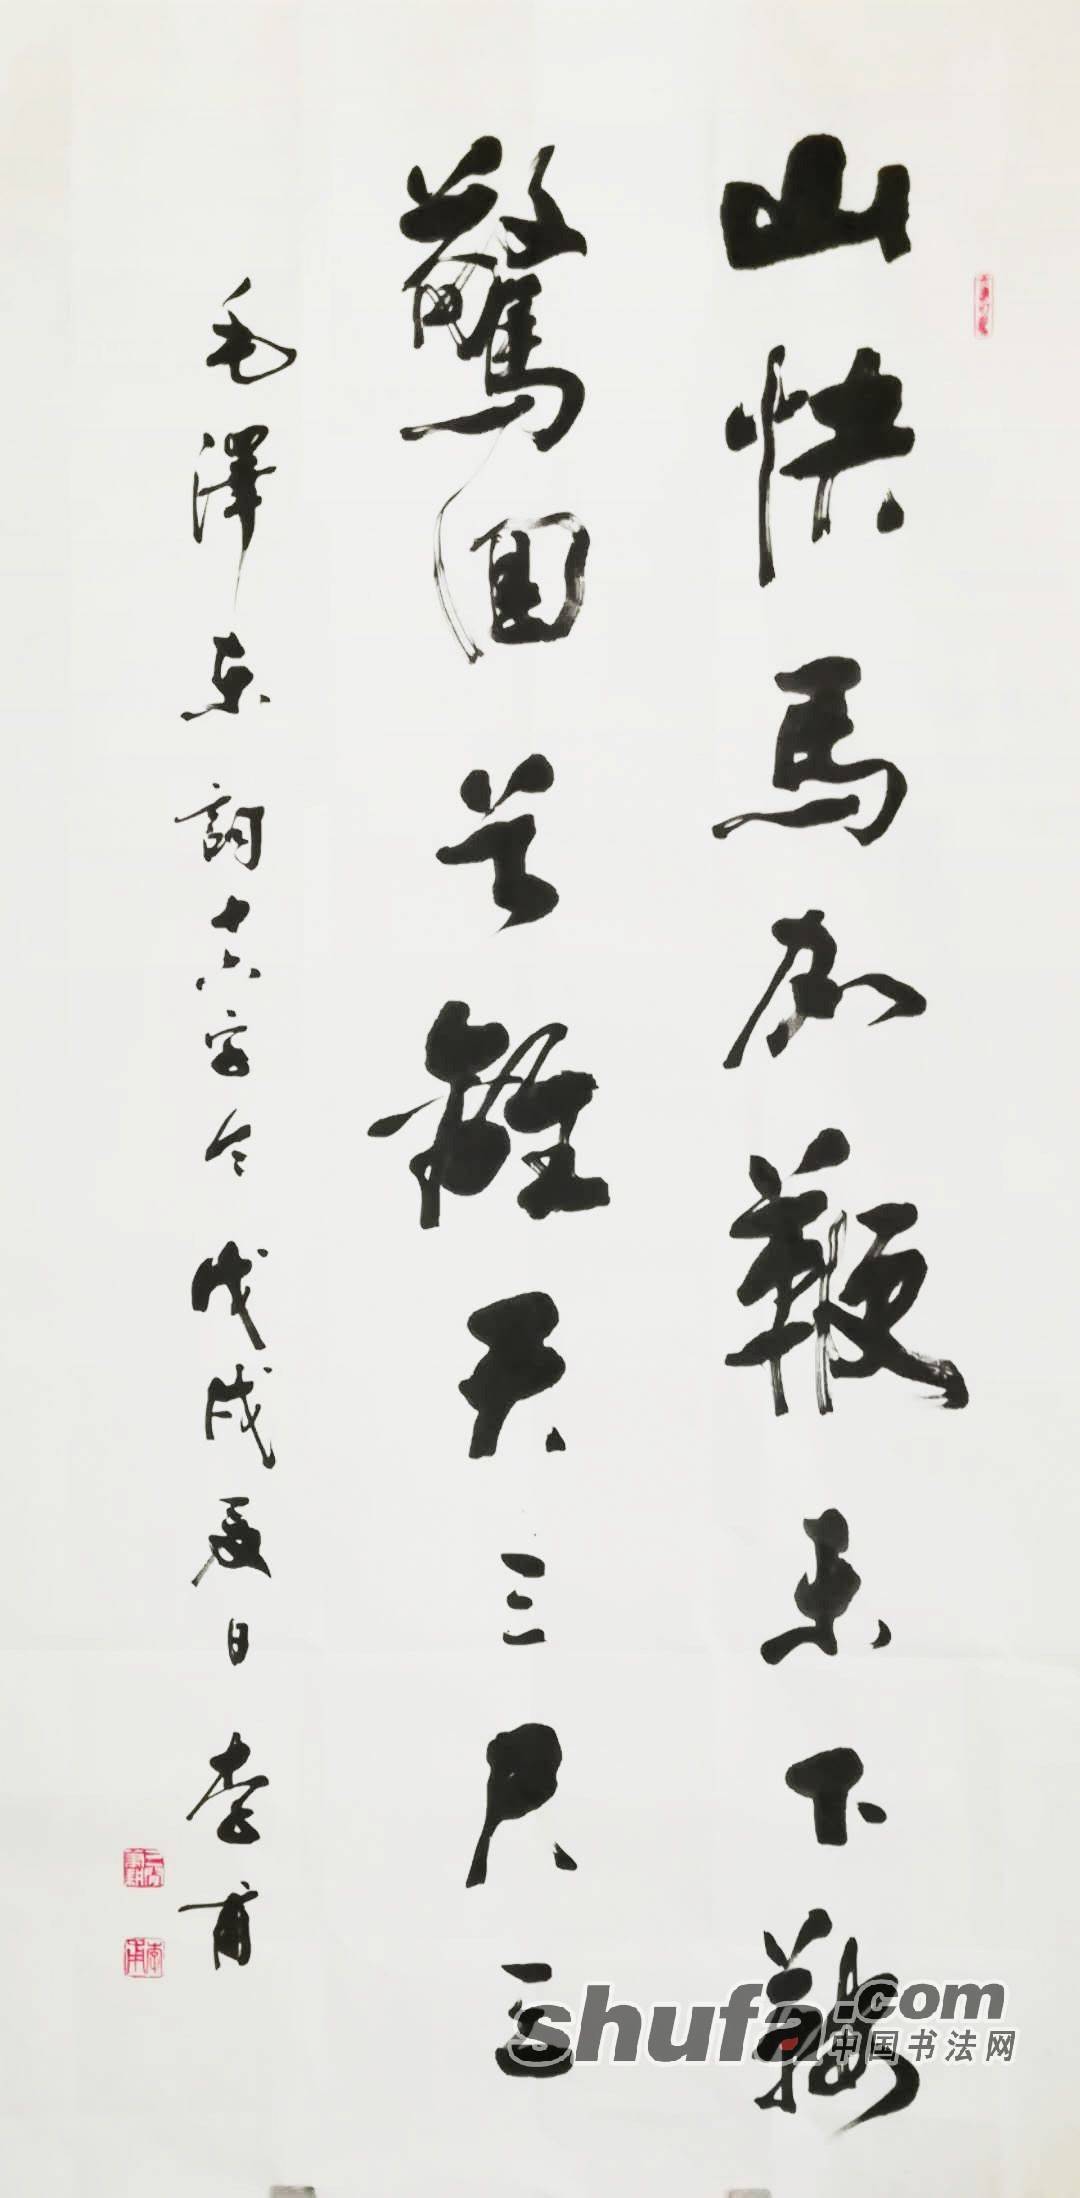 山快馬加鞭未下鞍
驚回首離天三尺三
毛澤东詞十六字令戊戌夏日李
shufa.com
中国书法网